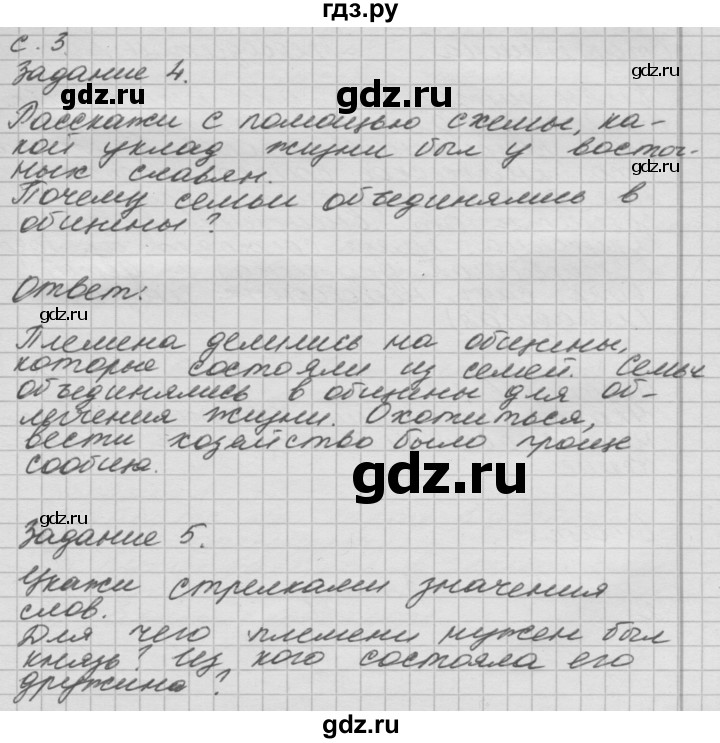 гдз.ру
с. 3
Задание 4.
gdz.ru
gdz.ru
gdz.ru
Расскажи с помощью схемы, ка-
кой уклад жизни был у восточ-
ных славян.
gdz.ru
Почему семьи объединялись в
общины?
Ответ:
gdz.ru
Племена делились на общины,
которые состояли из семей. Семьи
объединялись в общины для об-
легчения жизни. Охотиться,
вести хозяйство было проще
сообща.
gdz.ru
gdz.ru
Задание 5.
Укажи стрелками значения
слов.
Для чего племени нужен был
князь? Из кого состояла его
дружина?
gdz.ru
gdz.ru